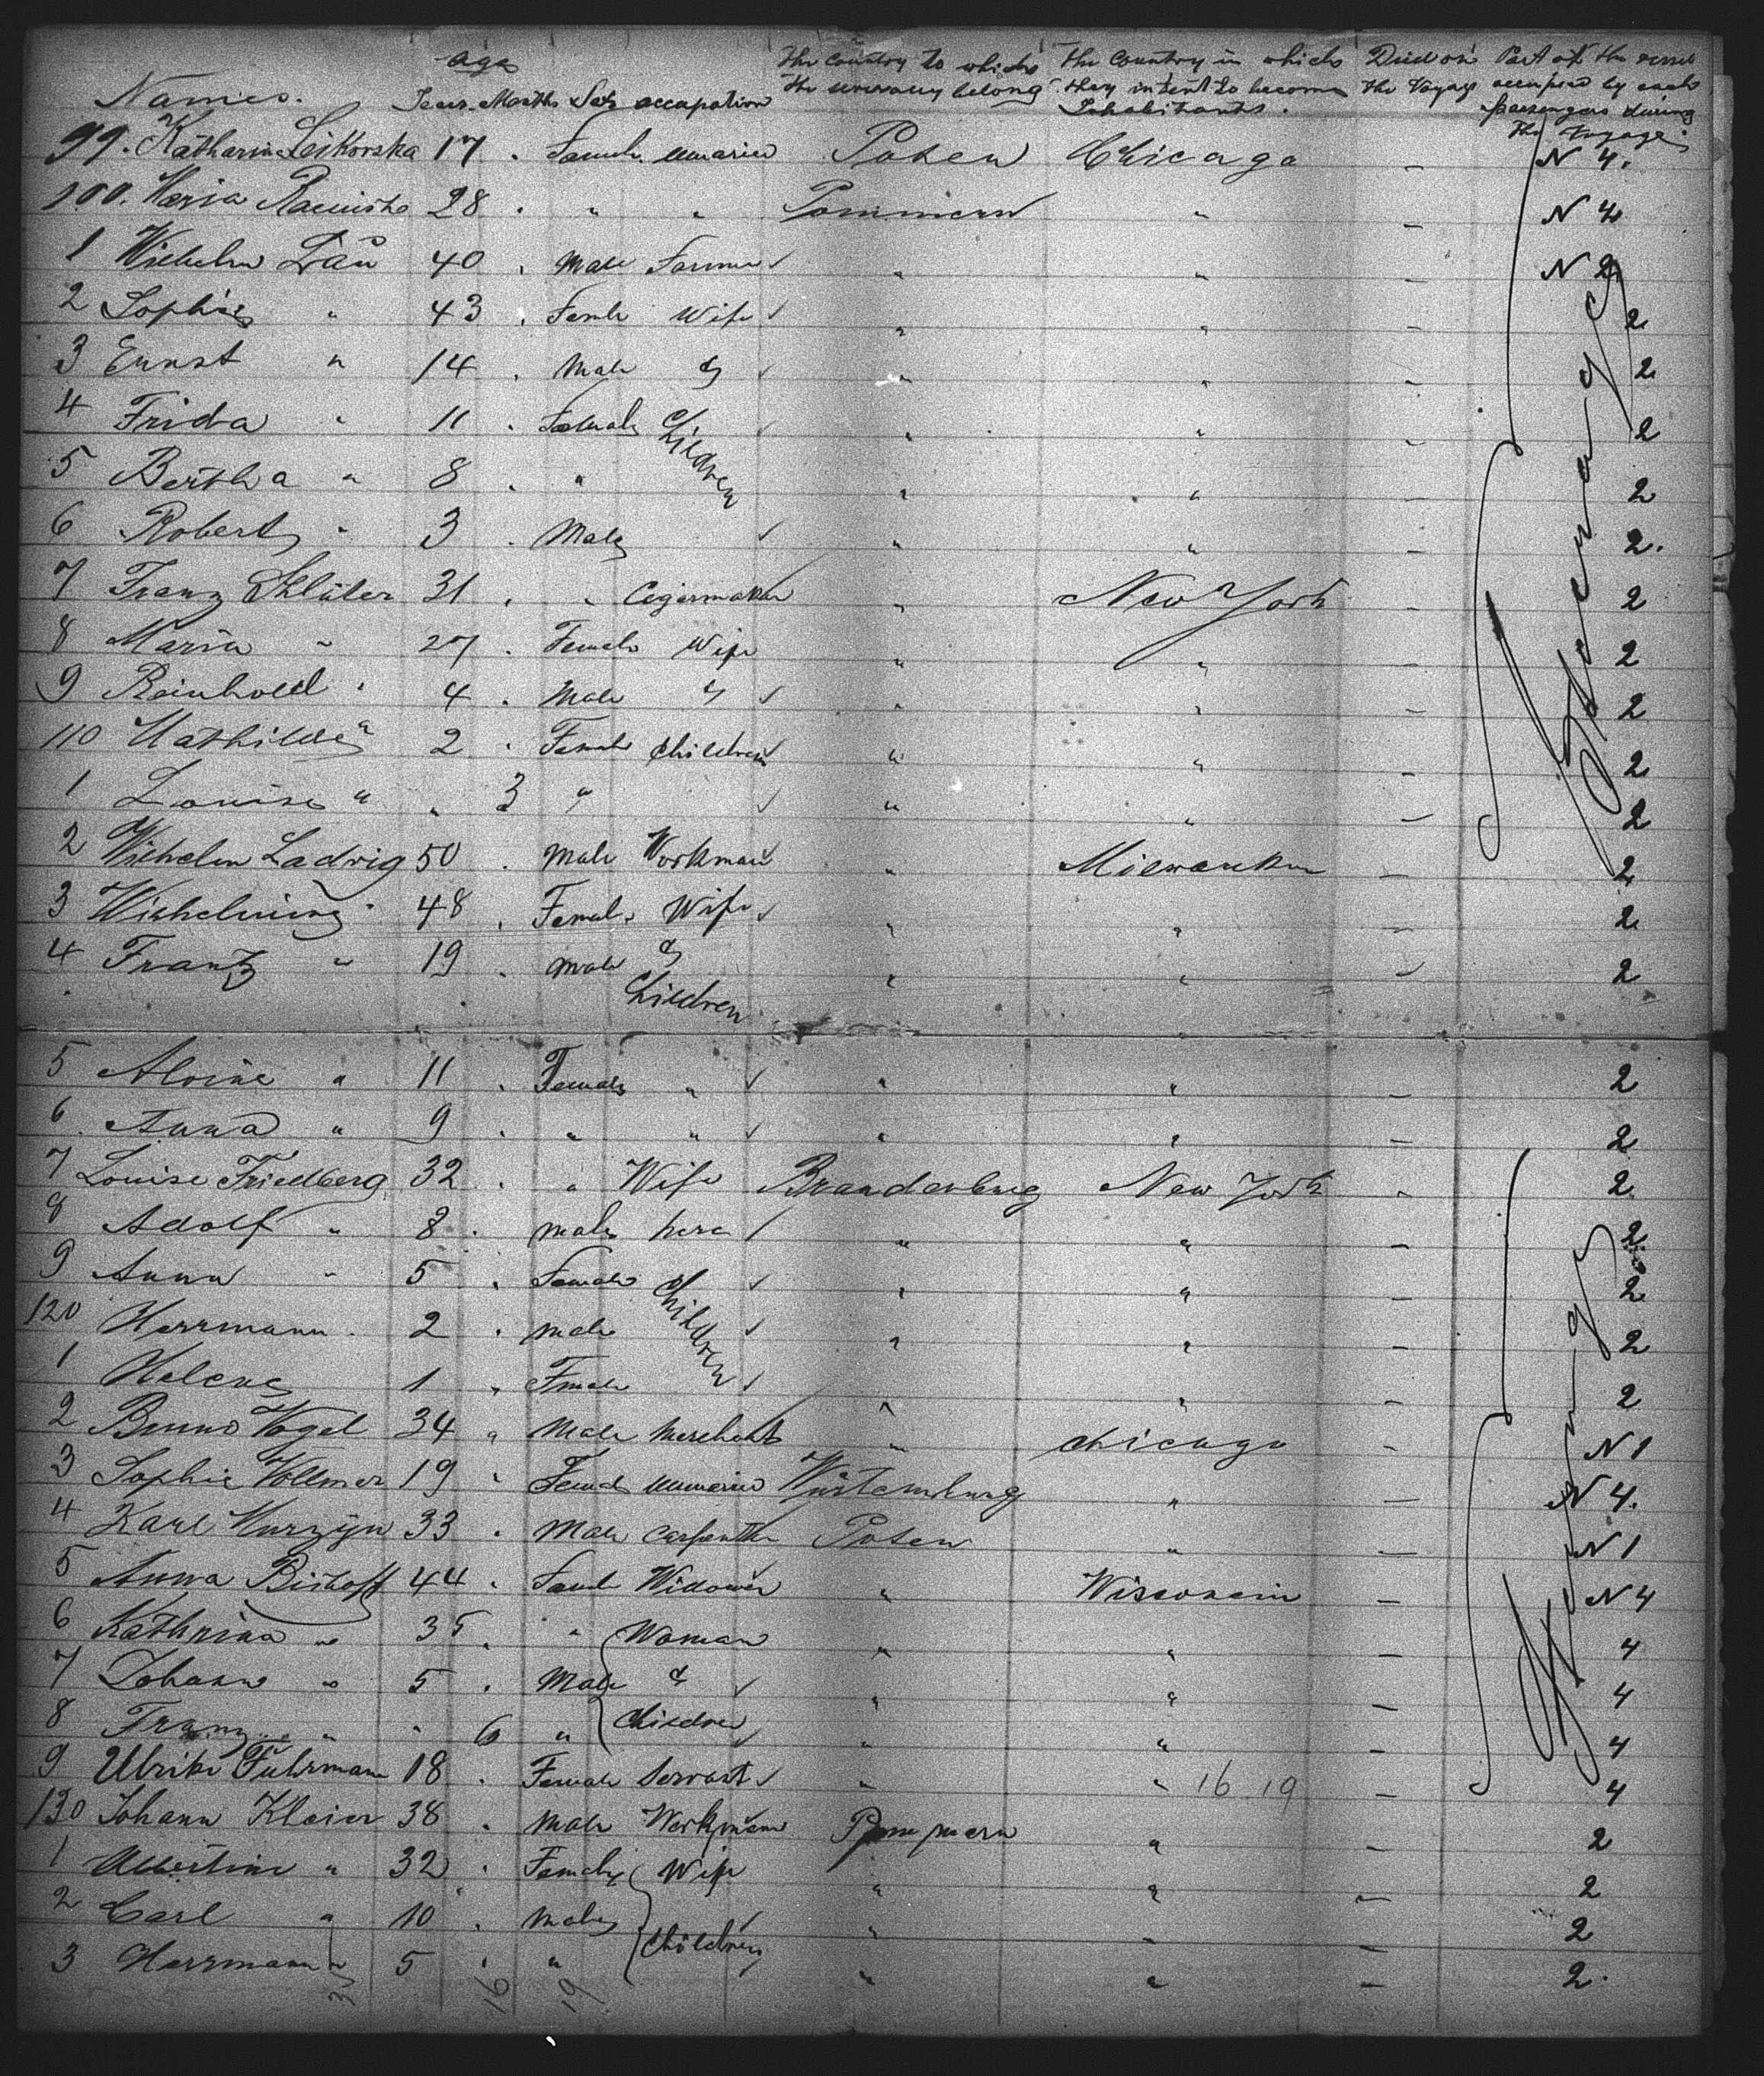 Names. Age Years Months Sex occupation The Country to which the severally belong The Country in which they intent to become Inhabitants. Died on the Voyage Part of the vessel occupied by each Passengers during the Voyage.
99. Katharina 17 . Female Posen Chicago — N 4.
100. Maria 28 . " " Pommern " — N 4
1 Wilhelm 40 . Male Farmer " " — N 2
2 Sophie " 43 . Female Wife " " — 2
3 Ernst " 14 . Male & " " — 2
4 Frida " 11 . Female Children " " — 2
5 Bertha " 8 . " " " — 2
6 Robert " 3 . Male " " — 2.
7 Franz Schlüter 31 . " Cigarmaker " New York — 2
8 Maria " 27 . Female Wife " " — 2
9 Reinhold " 4 . Male & " " — 2
110 Mathilde " 2 . Female Children " " — 2
1 Louise " " 3 " " " — 2
2 Wilhelm Ladwig 50 . Male Workman " Milwaukee — 2
3 Wilhelmine " 48 . Female Wife " " — 2
4 Frantz " 19 . male & " " — 2
Children
5 Alvine " 11 . Female " " " — 2
6 Anna " 9 . " " " " — 2
7 Louise Friedberg 32 . " Wife Brandenburg New York — 2
8 Adolf " 8 . male " " — 2
9 Anna " 5 . Female Children " " — 2
120 Herrmann " 2 . male " " — 2
1 Helene 1 " Female " " — 2
2 Bruno Vogel 34 " Male Merchant " Chicago — N 1
3 Sophie Vollmer 19 " Female Würtemburg " — N 4.
4 Karl 33 . Male Carpenter Posen " — N 1
5 Anna Bishoff 44 . Female Widower " Wisconsin — N 4
6 Kathrina " 35 . " Woman " " — 4
7 Johann " 5 . Male & " " — 4
8 Franz " . 6 " Children " " — 4
9 Ulrike Fuhrmann 18 . Female Servant " " 16 19 — 4
130 Johann Kleier 38 . Male Workman Pommern " — 2
1 Albertine " 32 . Female Wife " " — 2
2 Carl " 10 . male " " — 2
3 Herrmann " 5 . " Children " " — 2.
16 19
Steerage
Steerage